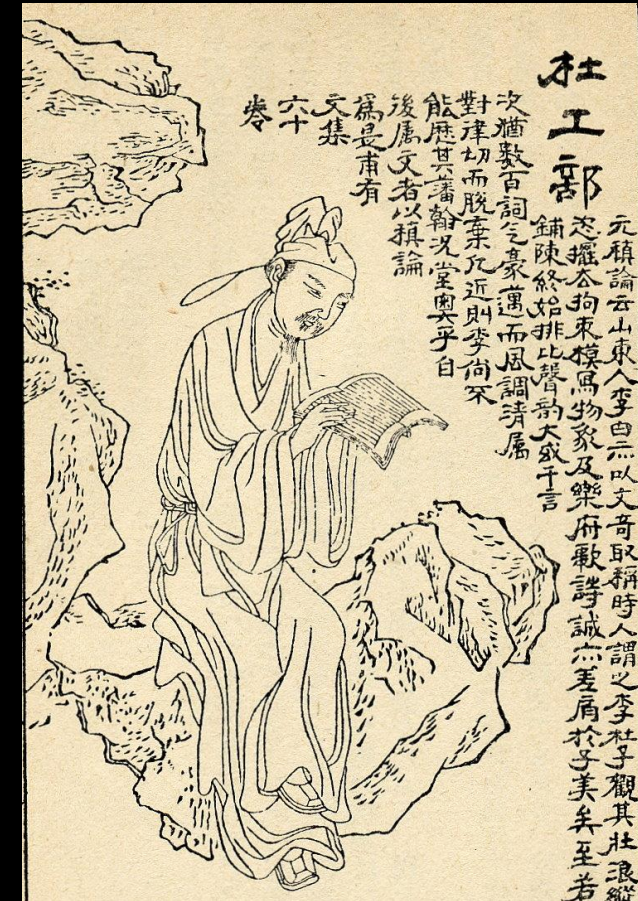 杜工部
元稹論云山東人李白亦以文奇取稱時人謂之李杜予觀其壯浪縱
恣擺去拘束模寫物象及樂府歌詩誠亦差肩於子美矣至若
鋪陳終始排比聲韵大或千言
次猶數百詞气豪邁而風調清属
對律切而脫棄凡近則李尚不
能歷其藩翰况堂奥乎自
後属文者以稹論
爲是甫有
文集
六十
卷